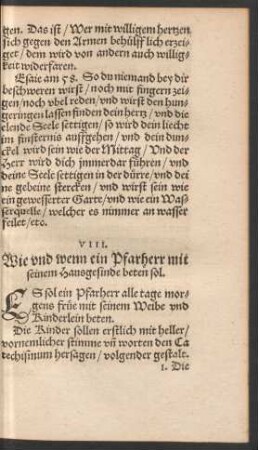 gen. Das ist/ Wer mit willigem hertzen
sich gegen den Armen behülfflich erzei-
get/ dem wird von andern auch willig-
keit widerfaren.
Esaie am 58. So du niemand bey dir
beschweren wirst/ noch mit fingern zei-
gen/ noch vbel reden/ vnd wirst den hun-
geringen lassen finden dein hertz/ vnd die
elende Seele settigen/ so wird dein liecht
im finsternis auffgehen/ vnd dein dun-
ckel wird sein wie der Mittag/ Vnd der
Herr wird dich jmmerdar führen/ vnd
deine Seele settigen in der dürre/ vnd dei
ne gebeine stercken/ vnd wirst sein wie
ein gewesserter Garte/ vnd wie ein Waß-
serquelle/ welcher es nimmer an wasser
feilet/ etc.
VIII.
Wie vnd wenn ein Pfarherr mit
seinem Hausgesinde beten sol.
ES sol ein Pfarherr alle tage mor-
gens früe mit seinem Weibe vnd
Kinderlein beten.
Die Kinder sollen erstlich mit heller/
vornemlicher stimme vn̄ worten den Ca
techismum hersagen/ volgender gestalt.
1. Die